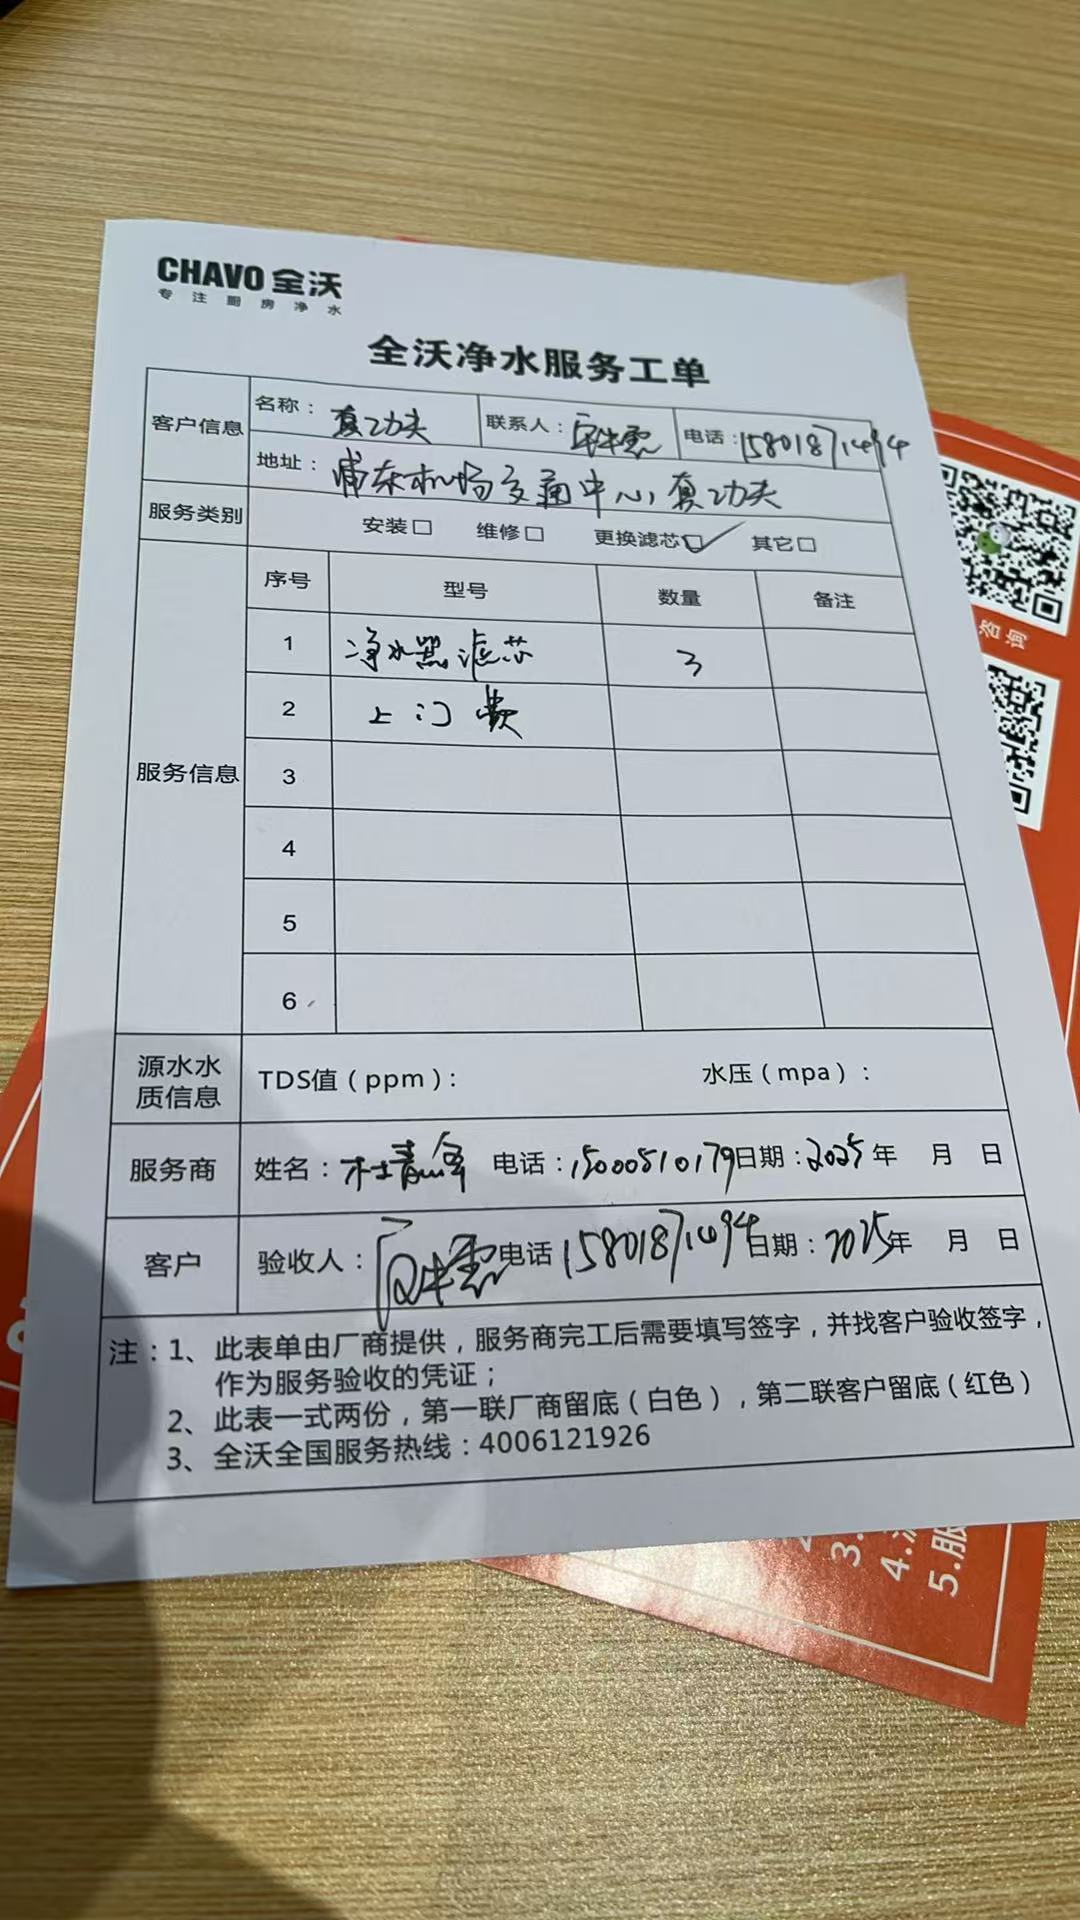 CHAVO 全沃
专注厨房净水
全沃净水服务工单
客户信息
名称：真功夫 联系人： 电话：15801871494
地址：浦东机场交通中心，真功夫
服务类别 安装□ 维修□ 更换滤芯□✓ 其它□
服务信息
序号 型号 数量 备注
1 净水器滤芯 3
2 上门费
3
4
5
6
源水水质信息 TDS值（ppm）： 水压（mpa）：
服务商 姓名：杜青 电话：15000510179 日期：2025年 月 日
客户 验收人： 电话 15801871494 日期：2025年 月 日
注：1、此表单由厂商提供，服务商完工后需要填写签字，并找客户验收签字，
作为服务验收的凭证；
2、此表一式两份，第一联厂商留底（白色），第二联客户留底（红色）
3、全沃全国服务热线：4006121926
咨询
3.
4.
5.服